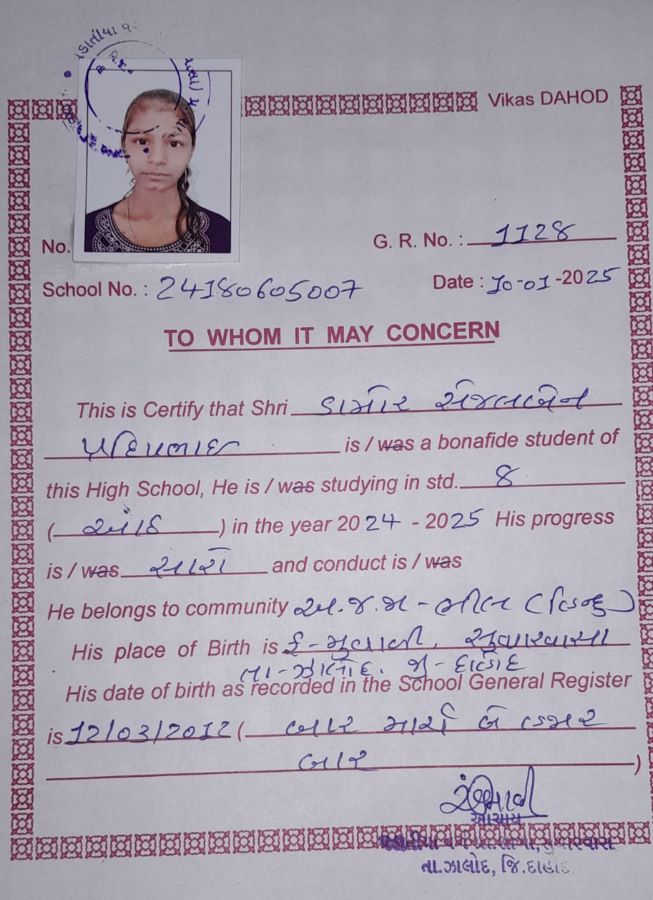 Vikas DAHOD
No.
G. R. No. : 1128
School No. : 24180605007
Date : 10-01-2025
TO WHOM IT MAY CONCERN
This is Certify that Shri ડામોર સેજલબેન
is / was a bonafide student of
this High School, He is / was studying in std. 8
( આઠ ) in the year 2024 - 2025 His progress
is / was સારો and conduct is / was
He belongs to community અ.જ.જા - ભીલ (હિન્દુ)
His place of Birth is મુવાડી,
તા - ઝાલોદ. જી - દાહોદ
His date of birth as recorded in the School General Register
is 12/03/2012 ( બાર માર્ચ બે હજાર
બાર )
આચાર્ય
તા.ઝાલોદ, જિ.દાહોદ